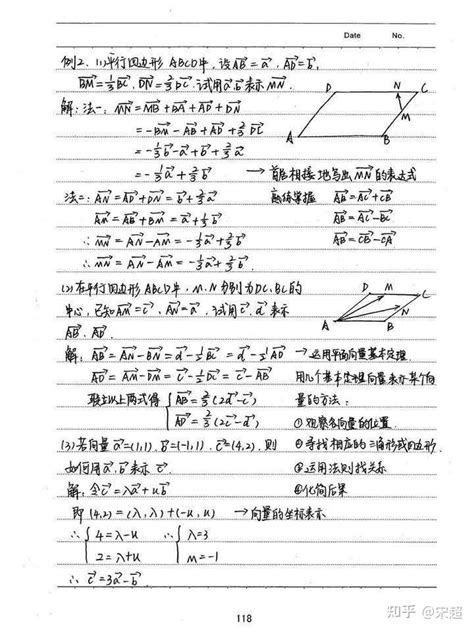 Date No.
例2、(1)平行四边形ABCD中，设AB=a，AD=b，
BM=1/3BC，DN=2/3DC，试用a,b表示MN.
解：法一：MN=MB+BA+AD+DN
=-BM-AB+AD+2/3DC
=-1/3b-a+b+2/3a
=-1/3a+2/3b → 首尾相接地写出MN的表达式
法二：AN=AD+DN=b+2/3a 熟练掌握 AB=AC+CB
AM=AB+BM=a+1/3b AB=AC-BC
∴MN=AN-AM=-1/3a+2/3b AB=CB-CA
∴MN=AN-AM=-1/3a+2/3b.
(2)在平行四边形ABCD中，M.N分别为DC.BC的
中心，已知AM=c，AN=d，试用c.d表示
AB.AD.
解：AB=AN-BN=d-1/2BC=d-1/2AD → 运用平面向量基本定理.
AD=AM-DM=c-1/2DC=c-AB 用几个基本定理向量表示某个向
联立以上两式得 AB=2/3(2d-c) 量的方法：
AD=2/3(2c-d) ①观察各向量的位置
(3)若向量a=(1,1)，b=(-1,1)，c=(4,2)，则 ②寻找相应的三角形或四边形
如何用a,b表示c. ③运用法则找关系
解：令c=λa+ub ④化简后果
即(4,2)=(λ,λ)+(-u,u) → 向量的坐标表示
∴ 4=λ-u λ=3
2=λ+u m=-1
∴c=3a-b.
A B C D M N
A B C D M N
118
知乎 @宋超